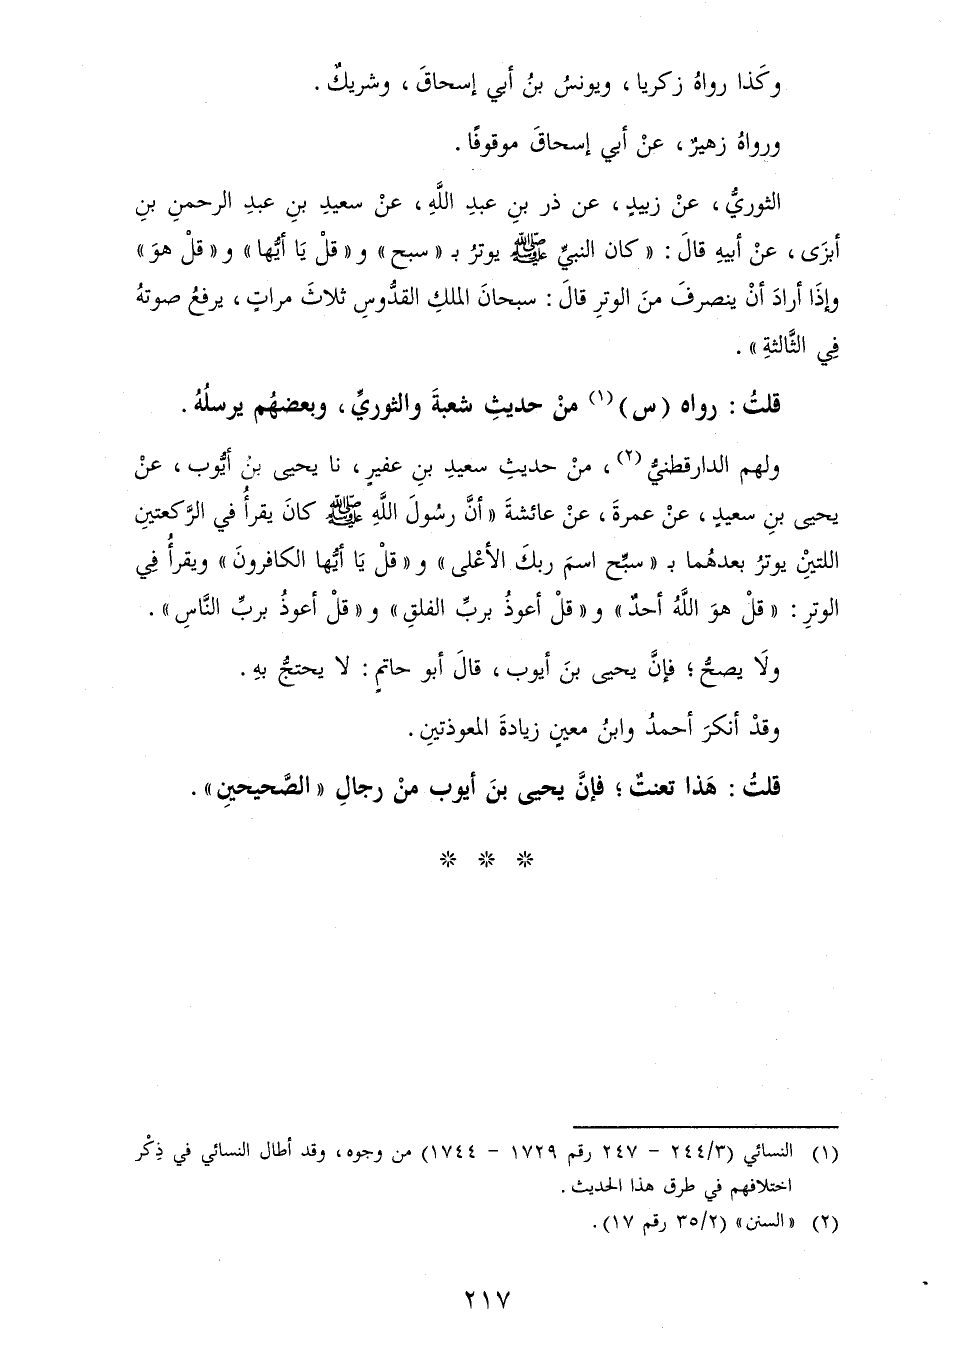 وكَذا رواهُ زكريا ، ويونسُ بنُ أبي إسحاقَ ، وشريكٌ .
ورواهُ زهيرٌ ، عنْ أبي إسحاقَ موقوفًا .
الثوريُّ ، عنْ زبيدٍ ، عن ذر بنِ عبدِ اللَّهِ ، عنْ سعيدِ بنِ عبدِ الرحمنِ بنِ
أبزَى ، عنْ أبيهِ قالَ : « كان النبيِّ ﷺ يوترُ بـ « سبح » و « قلْ يَا أيُّها » و « قلْ هوَ »
وإذَا أرادَ أنْ ينصرفَ منَ الوترِ قالَ : سبحانَ الملكِ القدُّوسِ ثلاثَ مراتٍ ، يرفعُ صوتهُ
فِي الثَّالثةِ » .
قلتُ : رواه (س)(١) منْ حديثِ شعبةَ والثوريِّ ، وبعضهُم يرسلُهُ .
ولهم الدارقطنيُّ(٢) ، منْ حديثِ سعيدِ بنِ عفيرٍ ، نا يحيى بنُ أيُّوب ، عنْ
يحيى بنِ سعيدٍ ، عنْ عمرةَ ، عنْ عائشةَ « أنَّ رسُولَ اللَّهِ ﷺ كانَ يقرأُ في الرَّكعتينِ
اللتينْ يوترُ بعدهُما بـ « سبِّح اسمَ ربكَ الأعْلى » و « قلْ يَا أيُّها الكافرونَ » ويقرأُ فِي
الوترِ : « قلْ هوَ اللَّهُ أحدٌ » و « قلْ أعوذُ بربِّ الفلقِ » و « قلْ أعوذُ بربِّ النَّاسِ » .
ولَا يصحُّ ؛ فإنَّ يحيى بنَ أيوب ، قالَ أبو حاتمٍ : لا يحتجُّ بهِ .
وقدْ أنكرَ أحمدُ وابنُ معينٍ زيادةَ المعوذتينِ .
قلتُ : هَذا تعنتٌ ؛ فإنَّ يحيى بنَ أيوب منْ رجالِ « الصَّحيحينِ » .
* * *
(١) النسائي (٢٤٤/٣ - ٢٤٧ رقم ١٧٢٩ - ١٧٤٤) من وجوه، وقد أطال النسائي في ذِكْر
اختلافهم في طرق هذا الحديث .
(٢) «السنن» (٣٥/٢ رقم ١٧) .
٢١٧